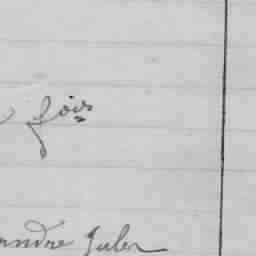 fois
andre Jules